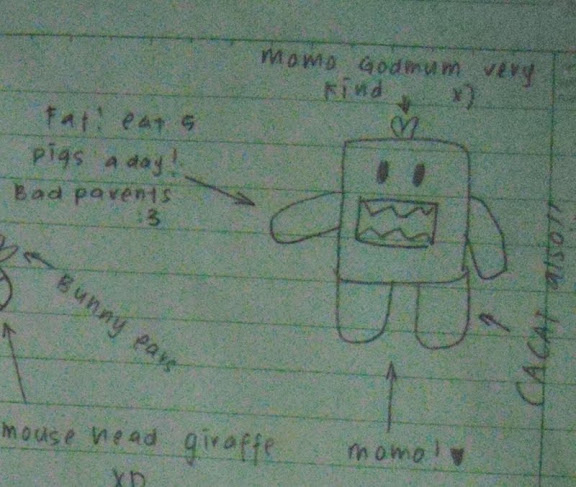 Momo Godmum very
kind x)
Fat! eat 5
pigs a day!
Bad parents
:3
Bunny ears
CACAT also!!
mouse head giraffe
XD
momo! ♥